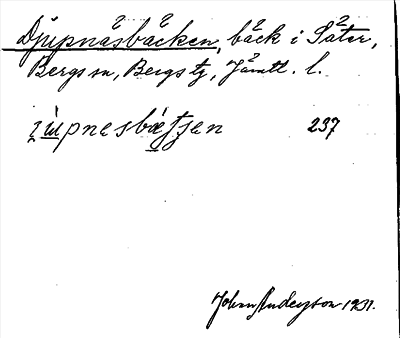 Djupnäsbäcken, bäck i Säter,
Bergs sn, Bergs tg, Jämtl. l.
237
Johan Anderson 1931.